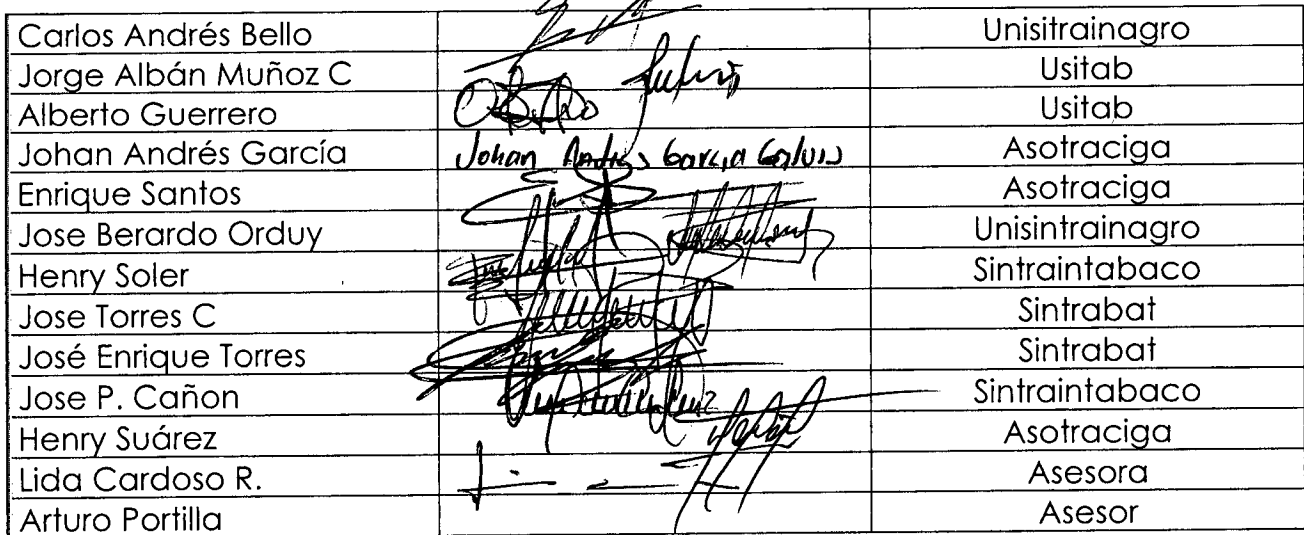 Carlos Andrés Bello Unisitrainagro
Jorge Albán Muñoz C Usitab
Alberto Guerrero Usitab
Johan Andrés García Johan Andrés Garcia Asotraciga
Enrique Santos Asotraciga
Jose Berardo Orduy Unisintrainagro
Henry Soler Sintraintabaco
Jose Torres C Sintrabat
José Enrique Torres Sintrabat
Jose P. Cañon Sintraintabaco
Henry Suárez Asotraciga
Lida Cardoso R. Asesora
Arturo Portilla Asesor